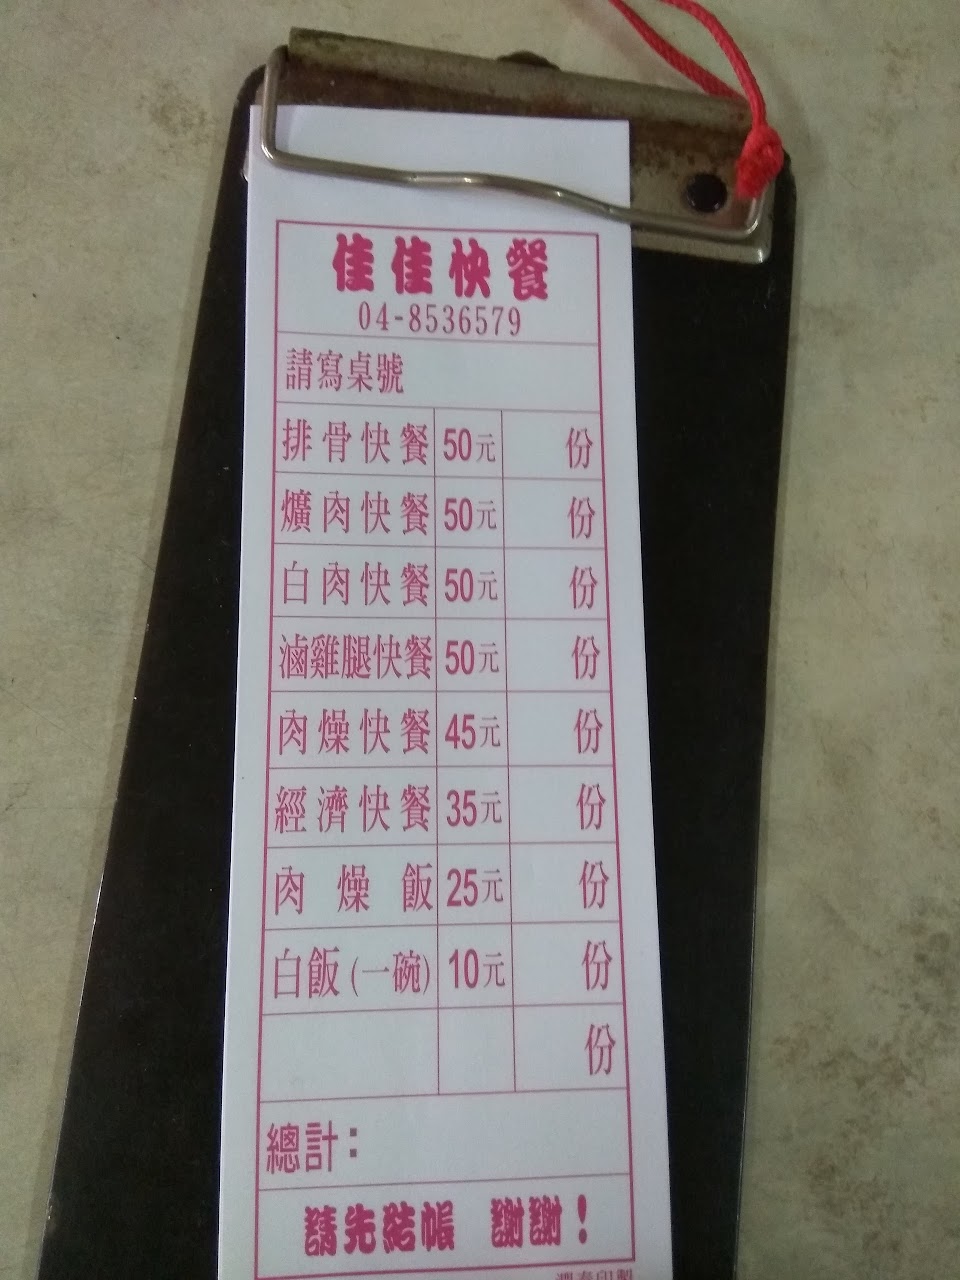 佳佳快餐
04-8536579
請寫桌號
排骨快餐 50元 份
爌肉快餐 50元 份
白肉快餐 50元 份
滷雞腿快餐 50元 份
肉燥快餐 45元 份
經濟快餐 35元 份
肉燥飯 25元 份
白飯(一碗) 10元 份
份
總計：
請先結帳 謝謝！